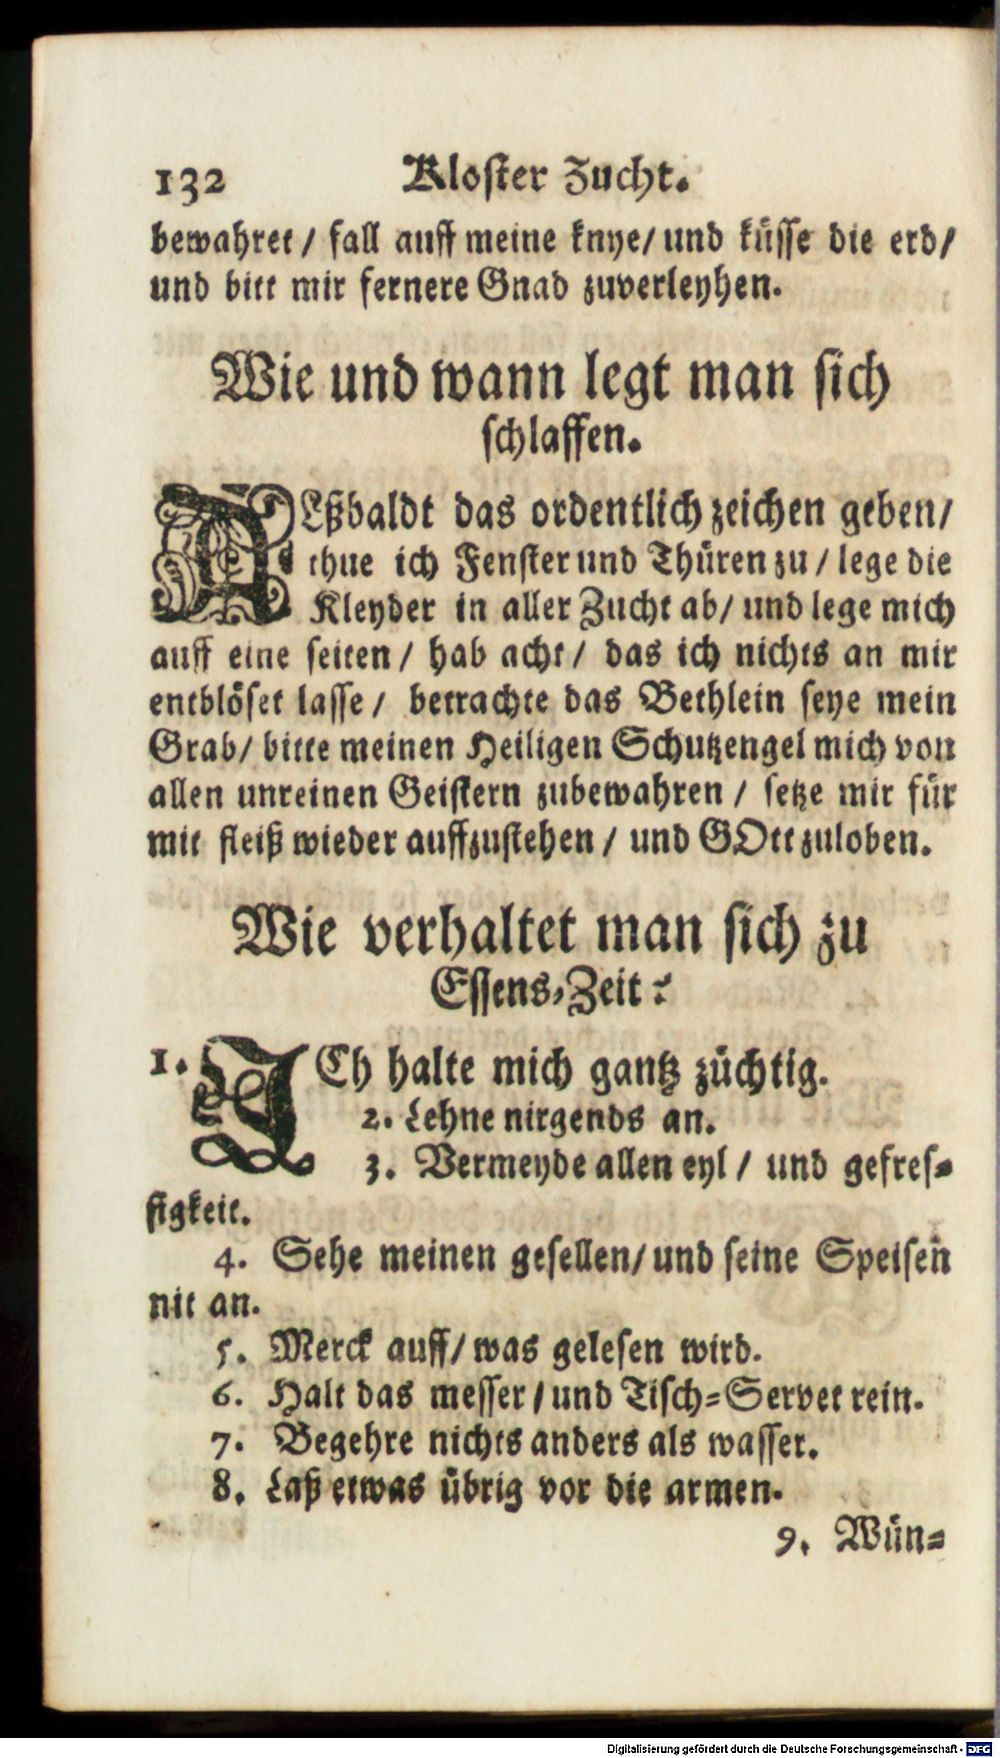 132 Kloster Zucht.
bewahret / fall auff meine knye / und küsse die erd /
und bitt mir fernere Gnad zuverleyhen.
Wie und wann legt man sich
schlaffen.
ALßbaldt das ordentlich zeichen geben /
thue ich Fenster und Thüren zu / lege die
Kleyder in aller Zucht ab / und lege mich
auff eine seiten / hab acht / das ich nichts an mir
entblöset lasse / betrachte das Bethlein seye mein
Grab / bitte meinen Heiligen Schutzengel mich von
allen unreinen Geistern zubewahren / setze mir für
mit fleiß wieder auffzustehen / und GOtt zuloben.
Wie verhaltet man sich zu
Essens-Zeit?
1. ICh halte mich gantz züchtig.
2. Lehne nirgends an.
3. Vermeyde allen eyl / und gefres-
sigkeit.
4. Sehe meinen gesellen / und seine Speisen
nit an.
5. Merck auff / was gelesen wird.
6. Halt das messer / und Tisch-Servet rein.
7. Begehre nichts anders als wasser.
8. Laß etwas übrig vor die armen.
9. Wün-
Digitalisierung gefördert durch die Deutsche Forschungsgemeinschaft - DFG